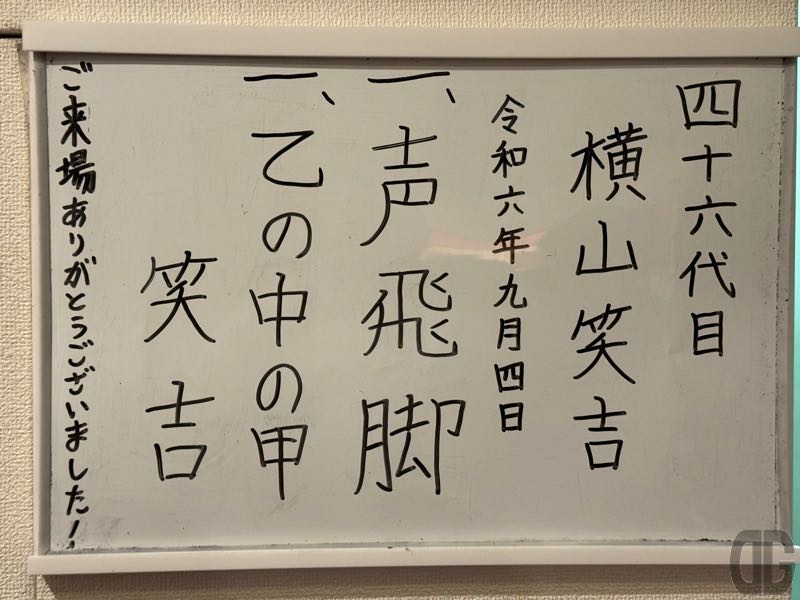 四十六代目
横山笑吉
令和六年九月四日
一、声飛脚
一、乙の中の甲
笑吉
ご来場ありがとうございました！
DG